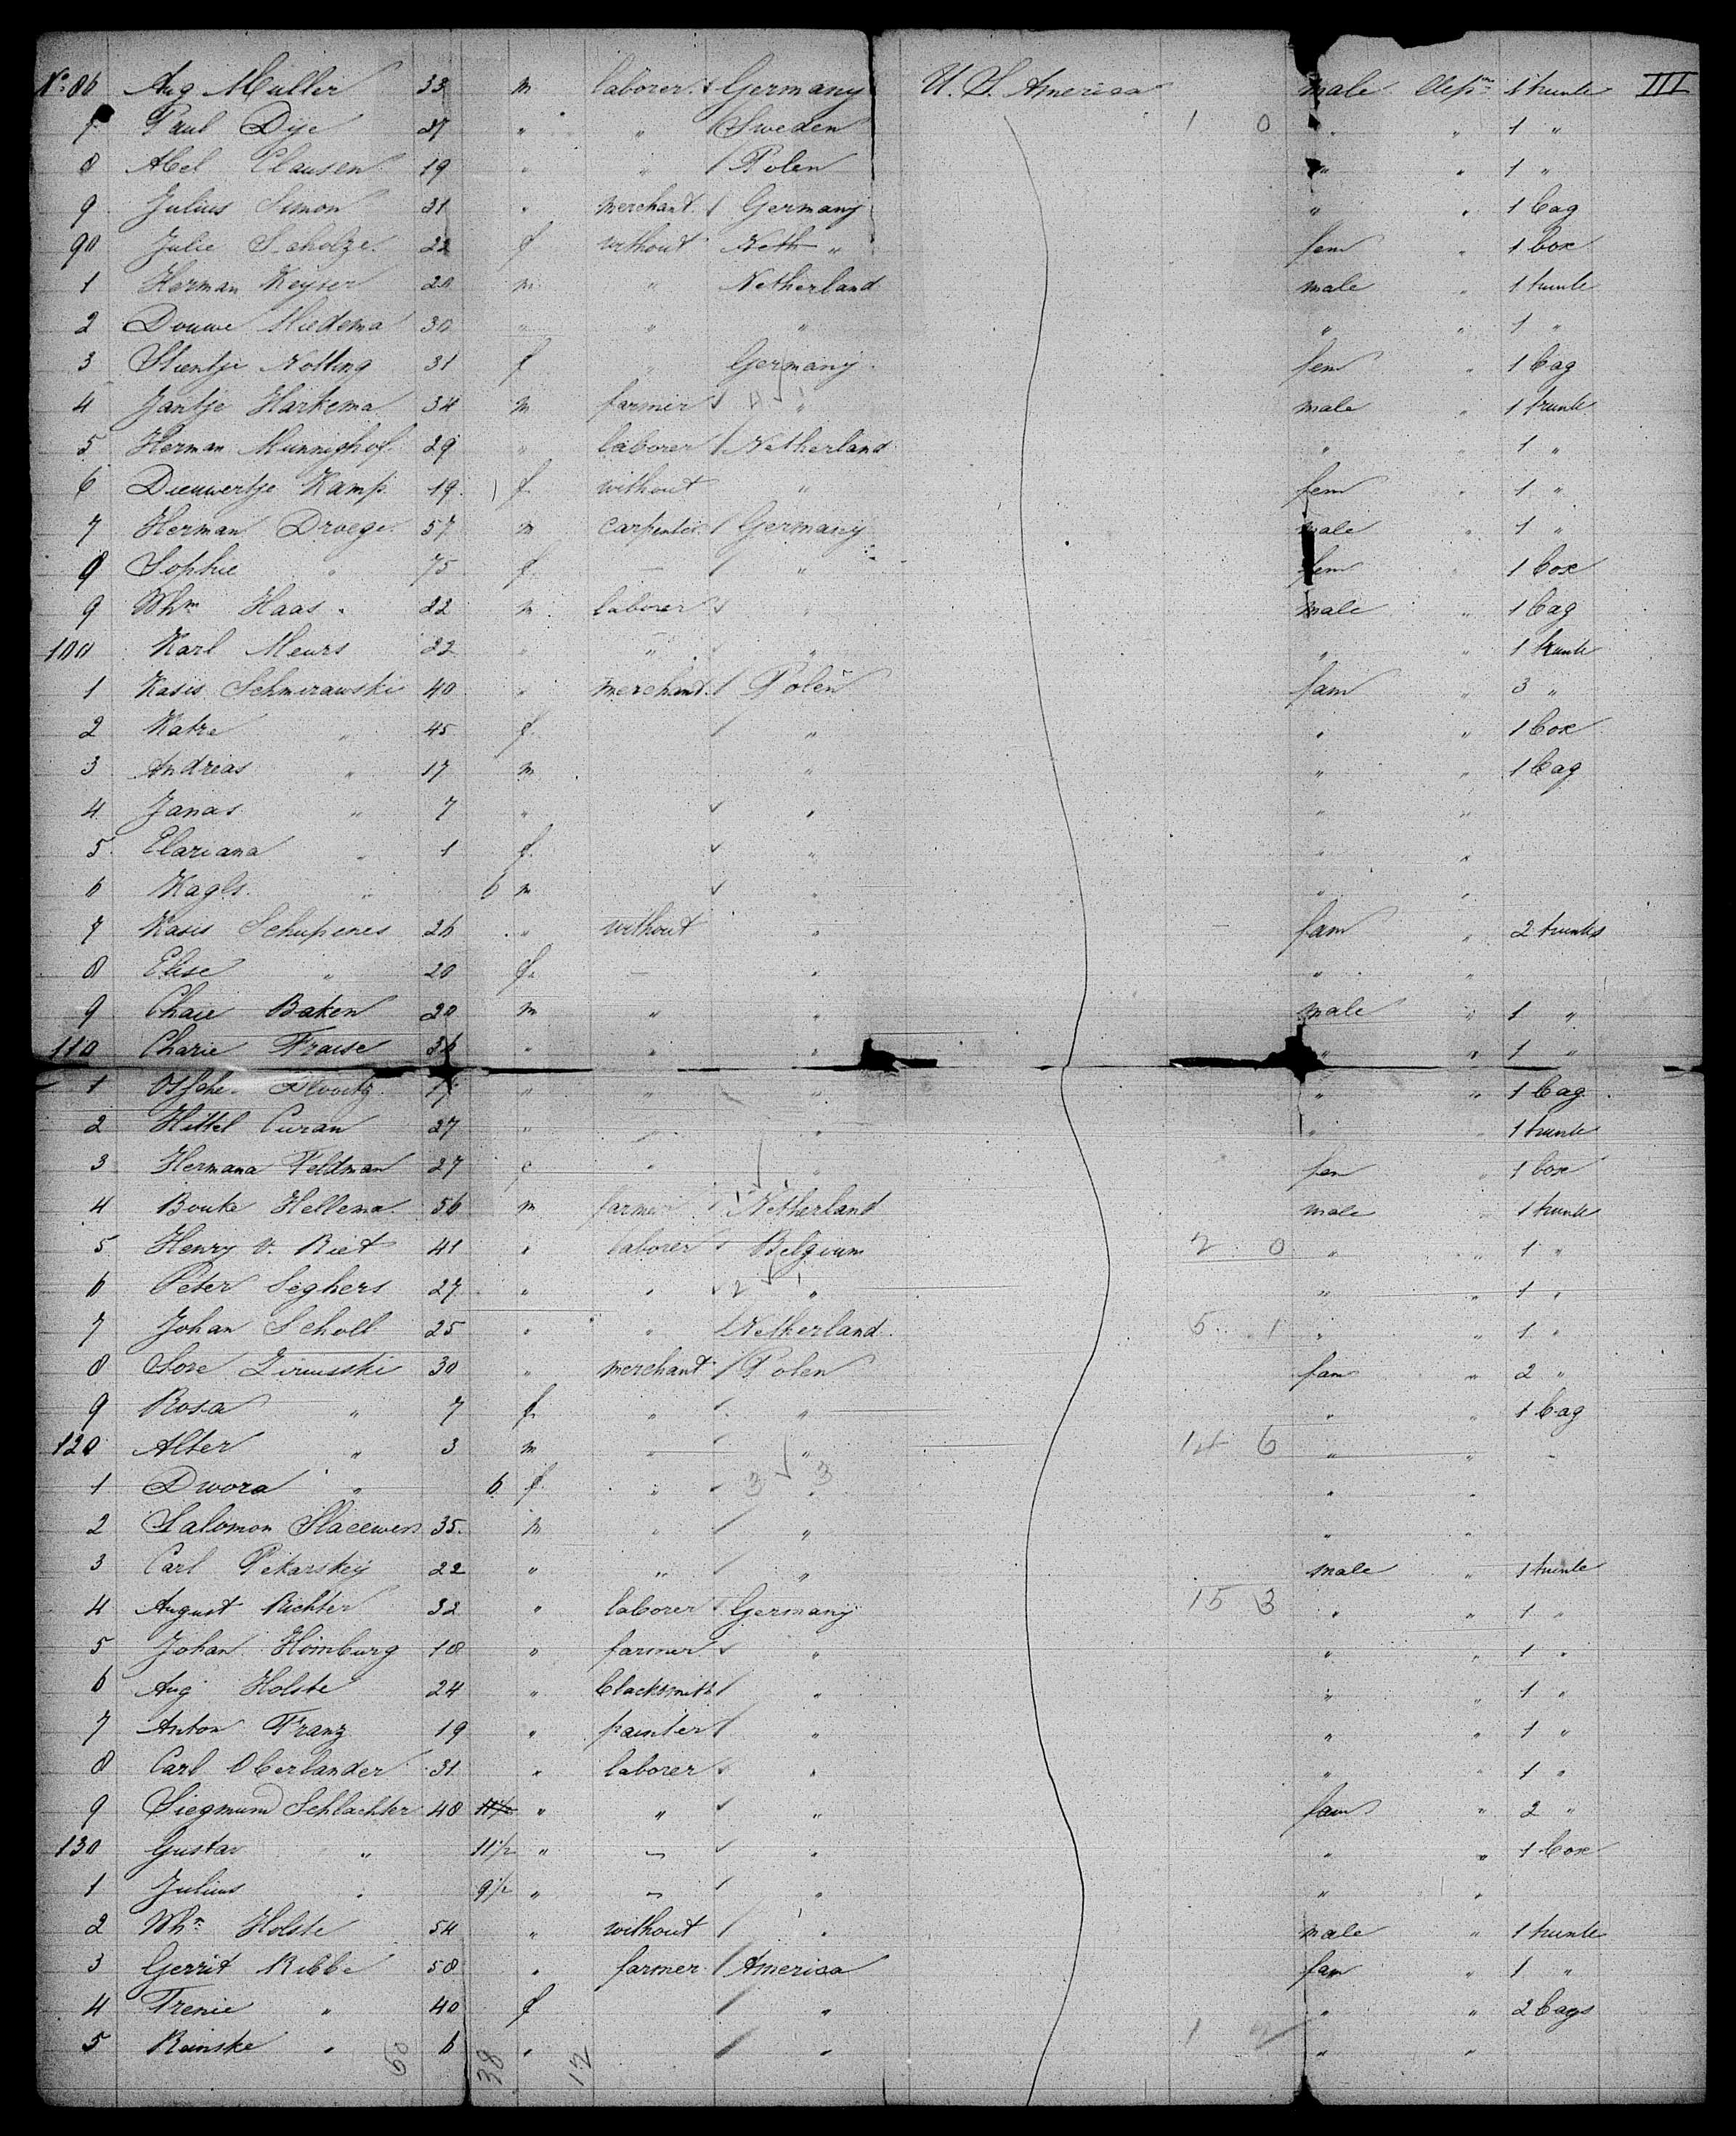 No. 86 Aug Muller 33 m laborer Germany U. S. America male 1 trunk III
7 Paul Dije 27 " " Sweden 1 0 " " 1 "
8 Abel Clausen 19 " " Polen " " 1 "
9 Julius Simon 31 " merchant Germany " " 1 bag
90 Julie Scholze 22 f without Neth " fem " 1 box
1 Herman Keyser 20 m " Netherland male " 1 trunk
2 Douwe Miedema 30 " " " " " 1 "
3 Stientje Nolting 31 f " Germany fem " 1 bag
4 Jantje Harkema 34 m farmer " male " 1 trunk
5 Herman Munnighof 29 " laborer Netherland " " 1 "
6 Dieuwertje Kamp 19 f without " fem " 1 "
7 Herman Droege 57 m carpenter Germany male " 1 "
8 Sophie " 75 f — " fem " 1 box
9 Whm Haas 22 m laborer " male " 1 bag
100 Karl Meurs 22 " " " " " 1 trunk
1 Kasis Schmirawski 40 " merchand Polen fam " 3 "
2 Katre " 45 f " " " 1 box
3 Andreas " 17 m " " " 1 bag
4 Janas " 7 " " " "
5 Clariana " 1 f " " "
6 Kagls " 6 m " " "
7 Kasis Schupenes 26 " without " fam " 2 trunks
8 Elise " 20 f — " " "
9 Chaie Baken 20 m " " male " 1 "
110 Charie Fraise 36 " " " " " 1 "
1 17 " " " " " 1 bag
2 Hittel Curan 27 " " " " " 1 trunk
3 Hermana Feldman 27 f " " fem " 1 box
4 Bouke Hellema 56 m farmer Netherland male " 1 trunk
5 Henry v. Riet 41 " laborer Belgium 2 0 " " 1 "
6 Peter Seghers 27 " " 2 " " " 1 "
7 Johan Scholl 25 " " Netherland 5 1 " " 1 "
8 Sore 30 " merchant Polen fam " 2 "
9 Rosa " 7 f " " " " 1 bag
120 Alter " 3 m " " 14 6 " " -
1 Dwora " 6 f " 3 3 " " "
2 Salomon 35 m " " " "
3 Carl Pekarskey 22 " " " male " 1 trunk
4 August Richter 32 " laborer Germany 15 3 " " 1 "
5 Johan Homburg 18 " farmer " " " 1 "
6 Aug Holste 24 " blacksmith " " " 1 "
7 Anton Franz 19 " painter " " " 1 "
8 Carl Oberlander 31 " laborer " " " 1 "
9 Siegmund Schlachter 48 11½ " " " fam " 2 "
130 Gustav " 11½ " — " " " 1 box
1 Julius " 9½ " — " " "
2 Whm Holste 54 " without " male " 1 trunk
3 Gerrit Ribbe 58 " farmer America fam " 1 "
4 Trenie " 40 f " " " 2 bags
5 Reinske " 6 " " 1 " "
60 38 12